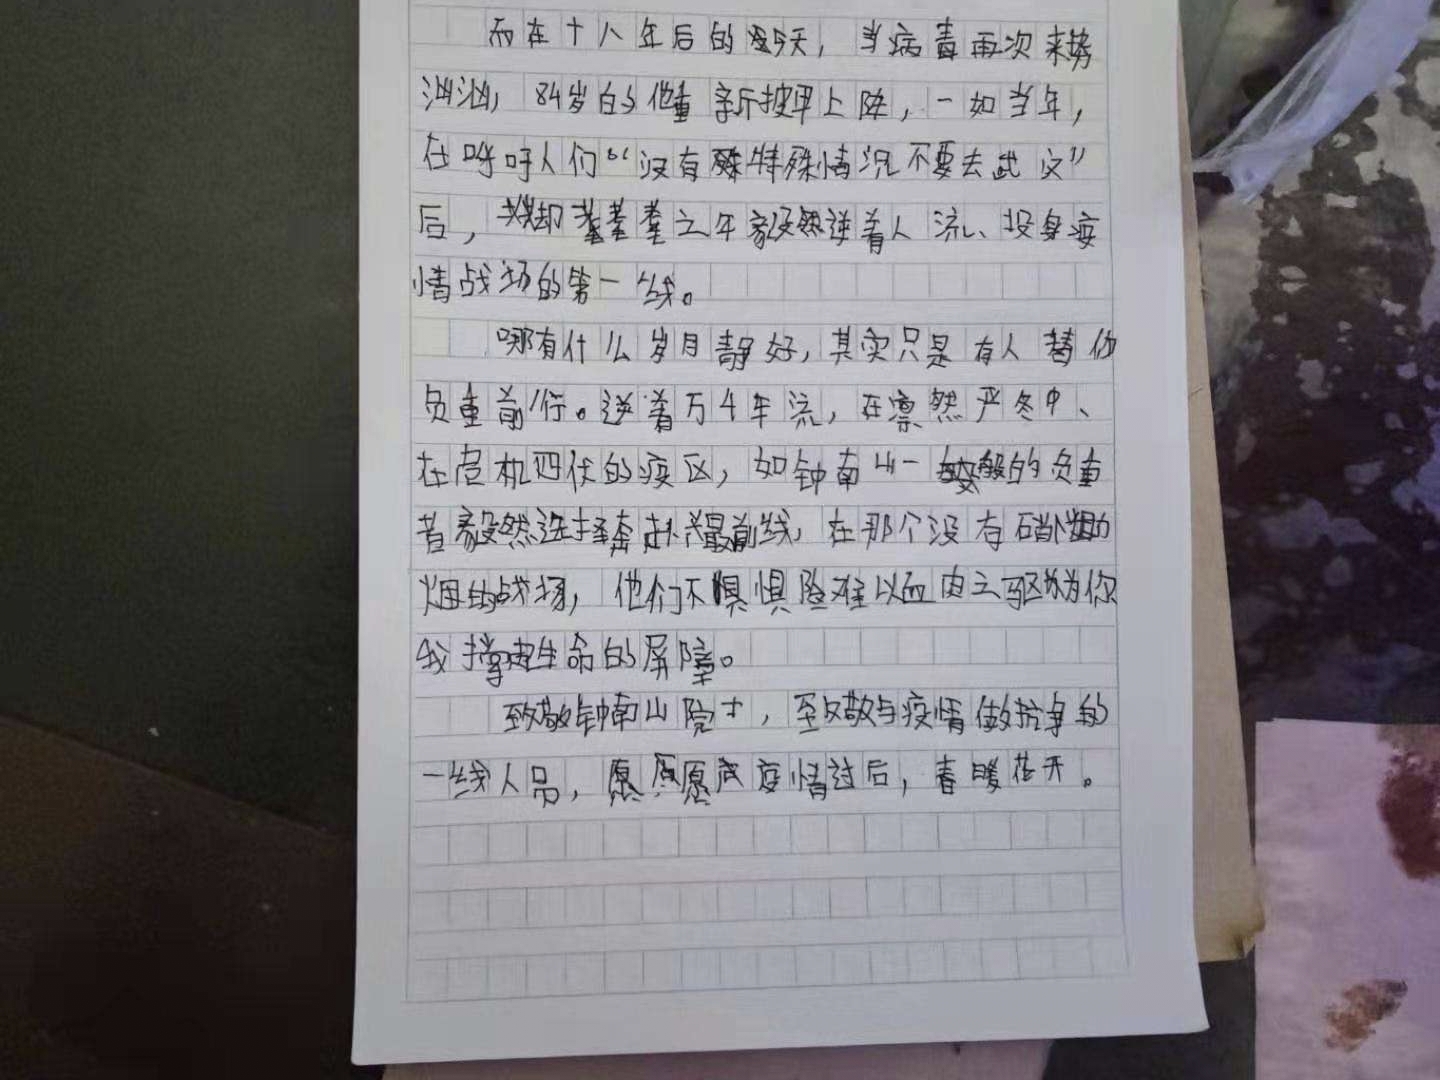 而在十八年后的今天，当病毒再次来势
汹汹，84岁的他重新披甲上阵，一如当年，
在呼吁人们“没有特殊情况不要去武汉”
后，却耄耋之年毅然逆着人流、投身疫
情战场的第一线。
哪有什么岁月静好，其实只是有人替你
负重前行。逆着万千年流，在凛然严冬中、
在危机四伏的疫区，如钟南山一般的负重
者毅然选择奔赴最前线，在那个没有硝
烟的战场，他们不惧险难以血肉之躯为你
我撑起生命的屏障。
致敬钟南山院士，致敬与疫情做抗争的
一线人员，愿疫情过后，春暖花开。